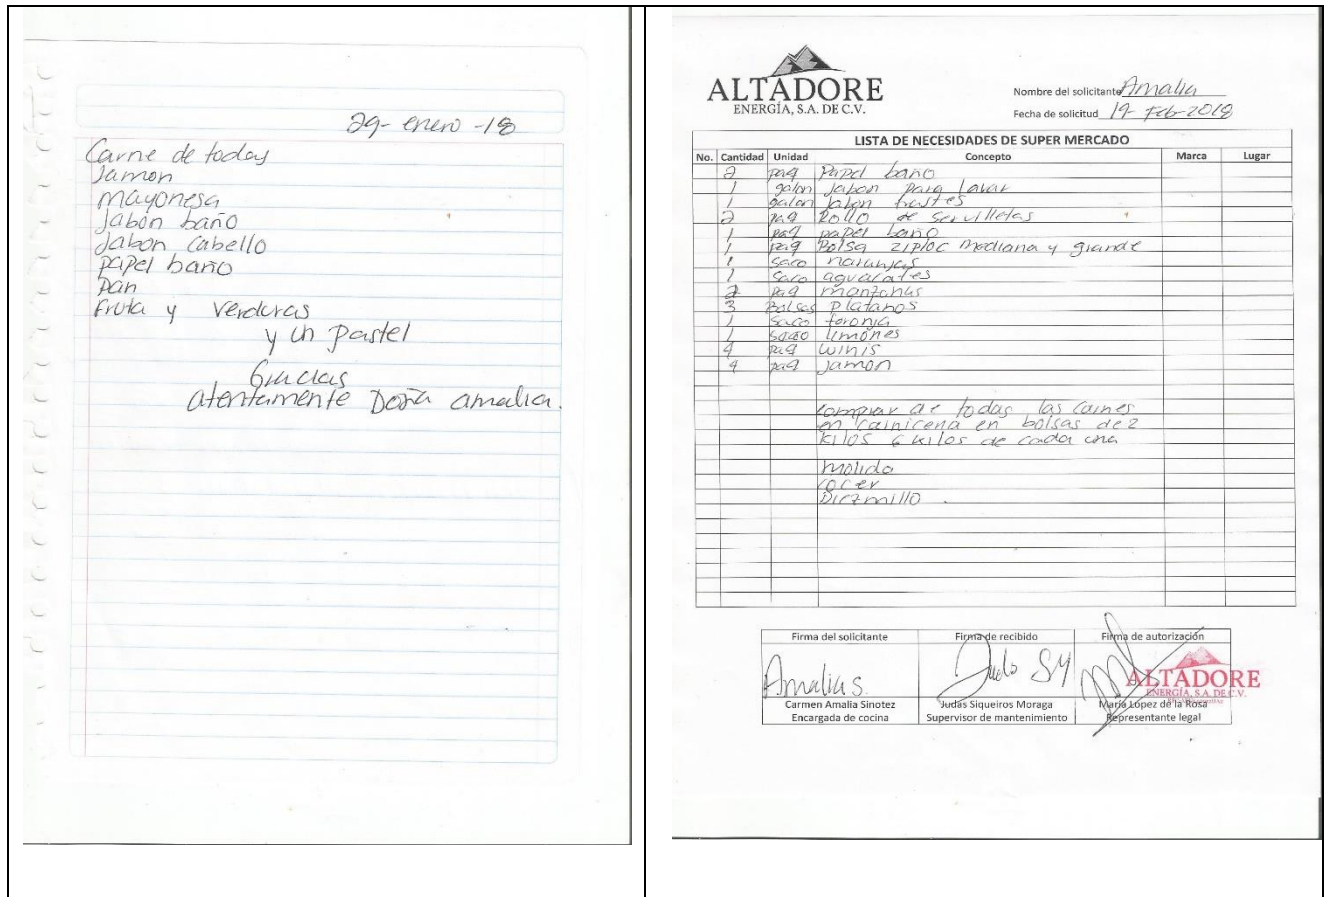 29- enero -18
Carne de todas
Jamon
mayonesa
Jabon baño
Jabon Cabello
papel baño
pan
Fruta y Verduras
y un pastel
Gracias
atentamente Doña amalia.
ALTADORE
ENERGÍA, S.A. DE C.V.
Nombre del solicitante Amalia
Fecha de solicitud 19- Feb-2018
LISTA DE NECESIDADES DE SUPER MERCADO
No. Cantidad Unidad Concepto Marca Lugar
2 paq Papel baño
1 galon jabon para lavar
1 galon jabon trastes
2 paq Rollo de Servilletas
1 paq papel baño
1 paq Bolsa ziploc mediana y grande
1 saco naranjas
1 saco aguacates
2 paq manzanas
3 Bolsas Platanos
1 saco toronja
1 saco limones
4 paq winis
4 paq Jamon
comprar de todas las carnes
en carniceria en bolsas de 2
kilos 6 kilos de cada una
molida
cocer
Diezmillo .
Firma del solicitante Firma de recibido Firma de autorización
Amalia S.
Carmen Amalia Sinotez Judas Siqueiros Moraga María Lopez de la Rosa
Encargada de cocina Supervisor de mantenimiento Representante legal
ALTADORE
ENERGÍA, S.A. DE C.V.